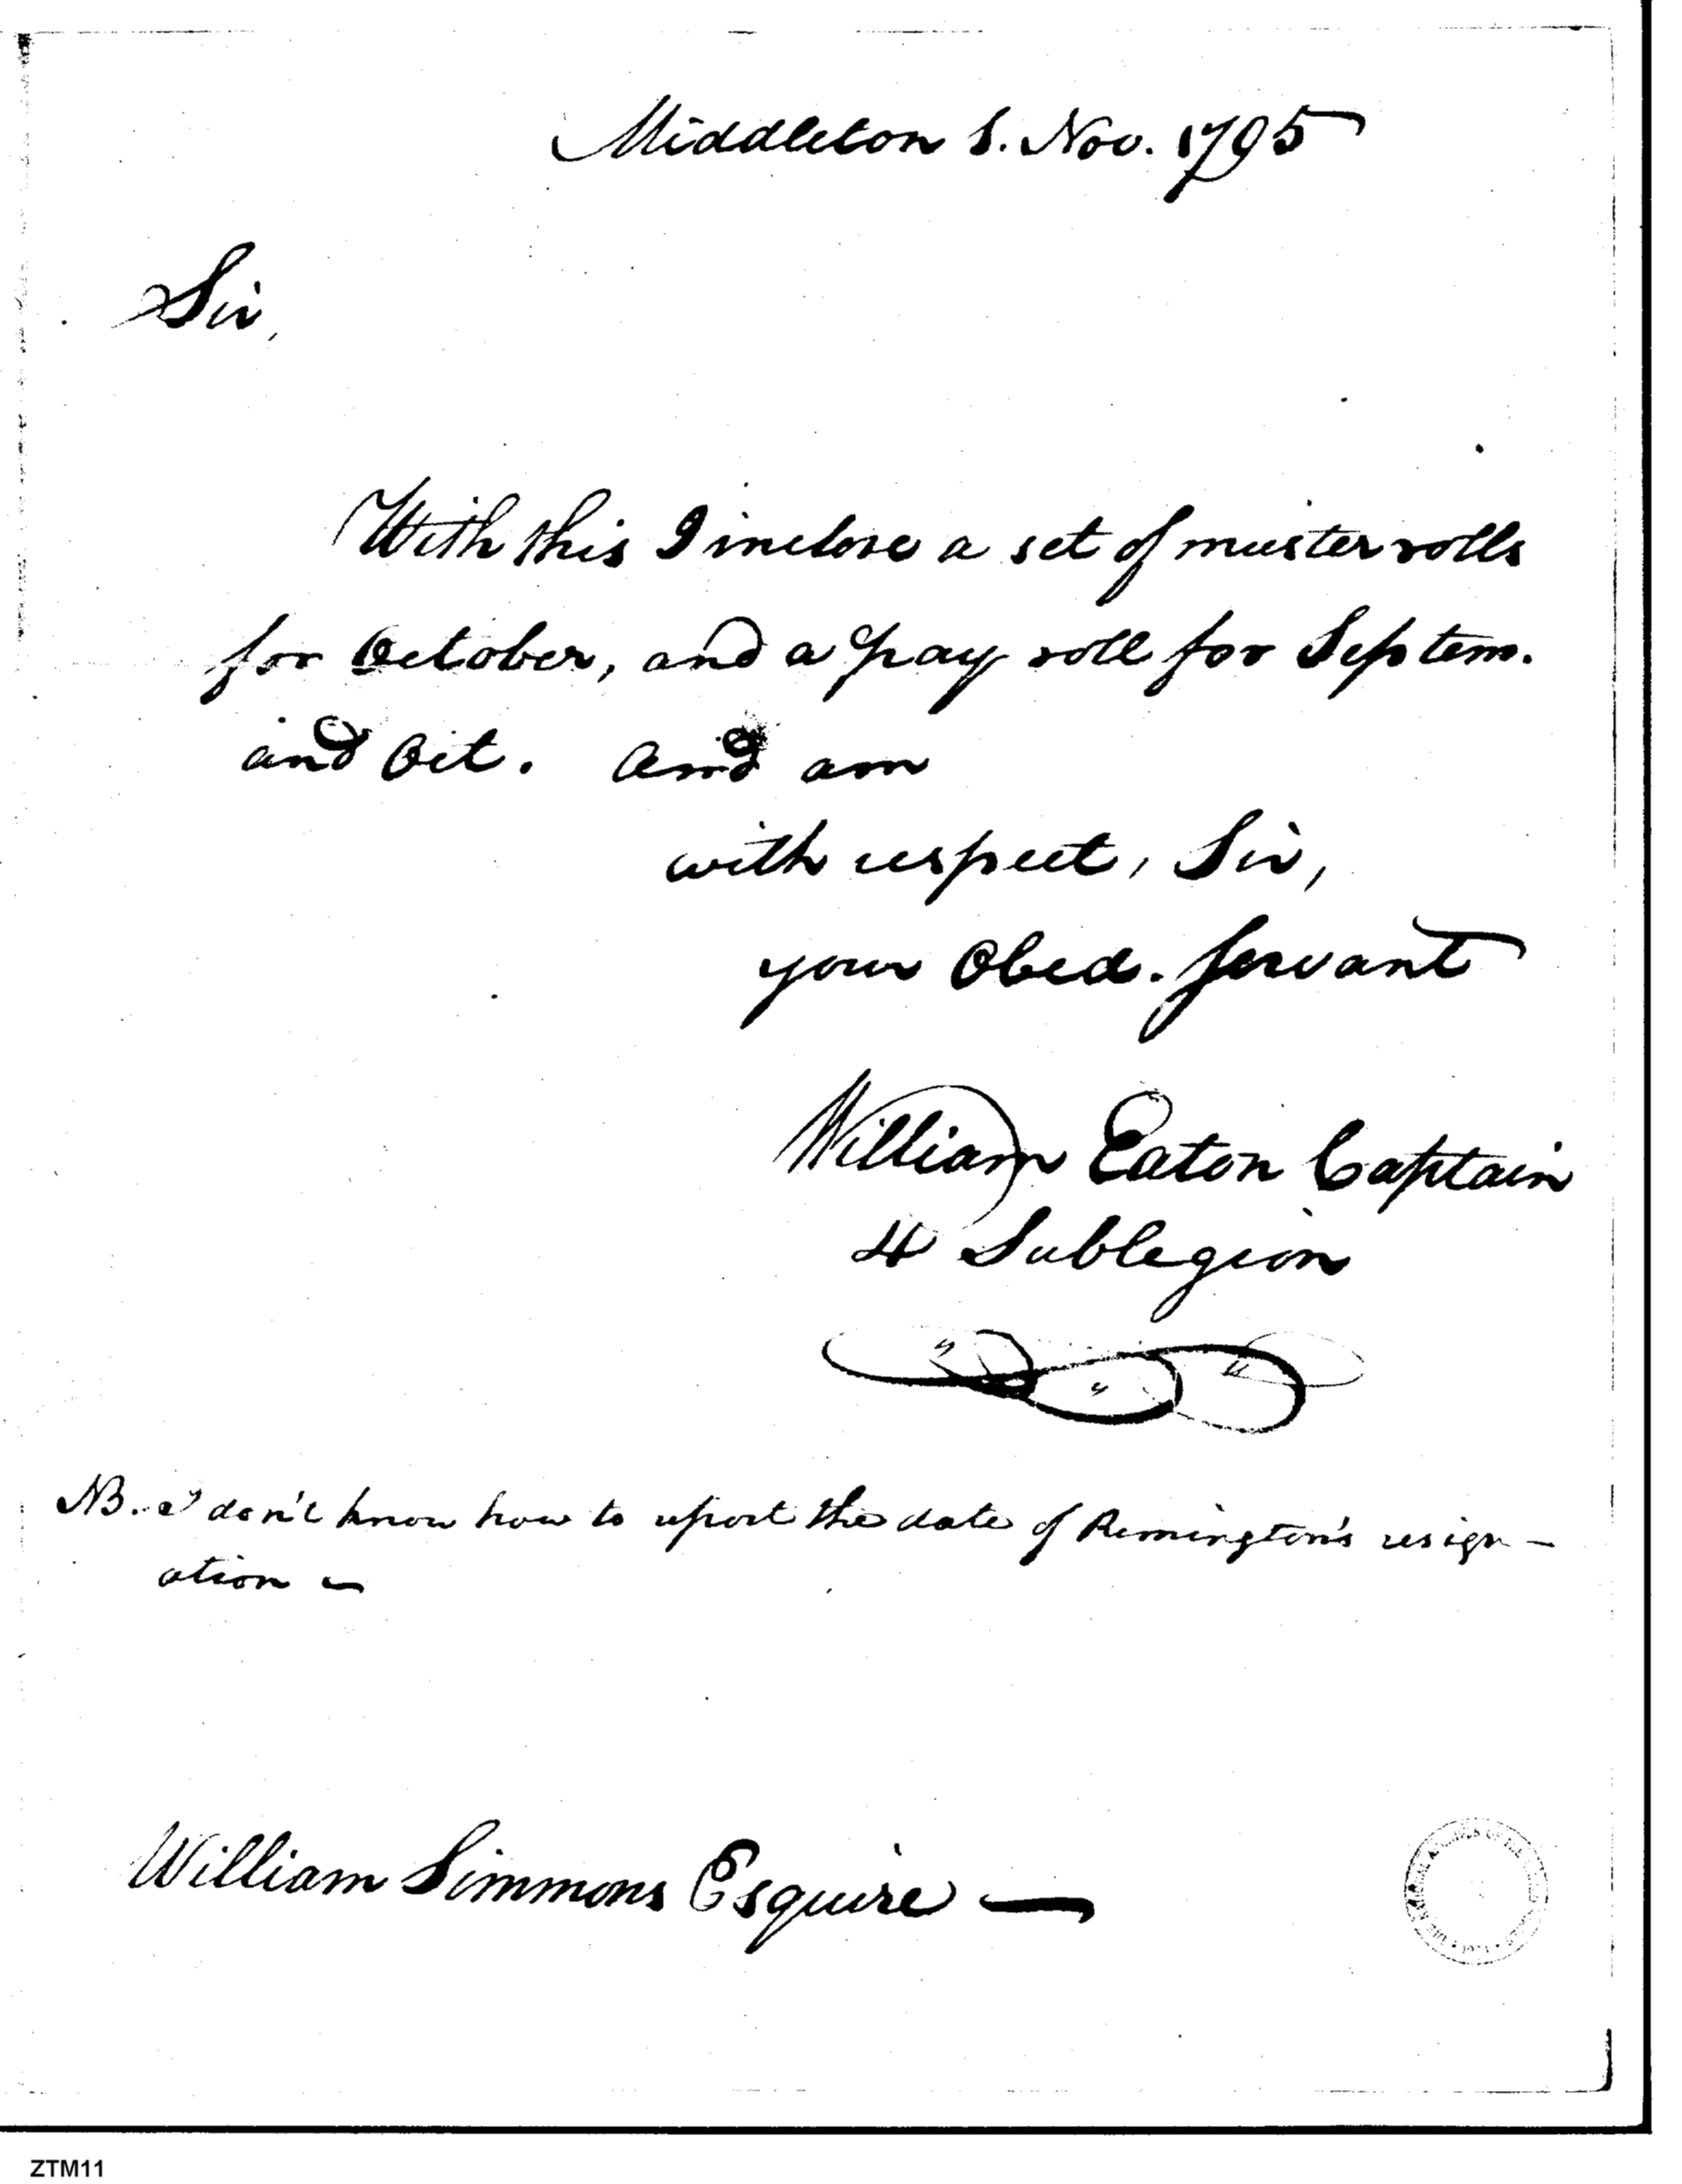 Middleton 8. Nov. 1795
Sir,
With this I inclose a set of muster rolls
for October, and a pay roll for Septem.
and Oct. And am
with respect, Sir,
your Obed. servant
William Eaton Captain
4 Sublegion
NB. I don't know how to report the date of Remington's resign-
ation —
William Simmons Esquire —
ZTM11